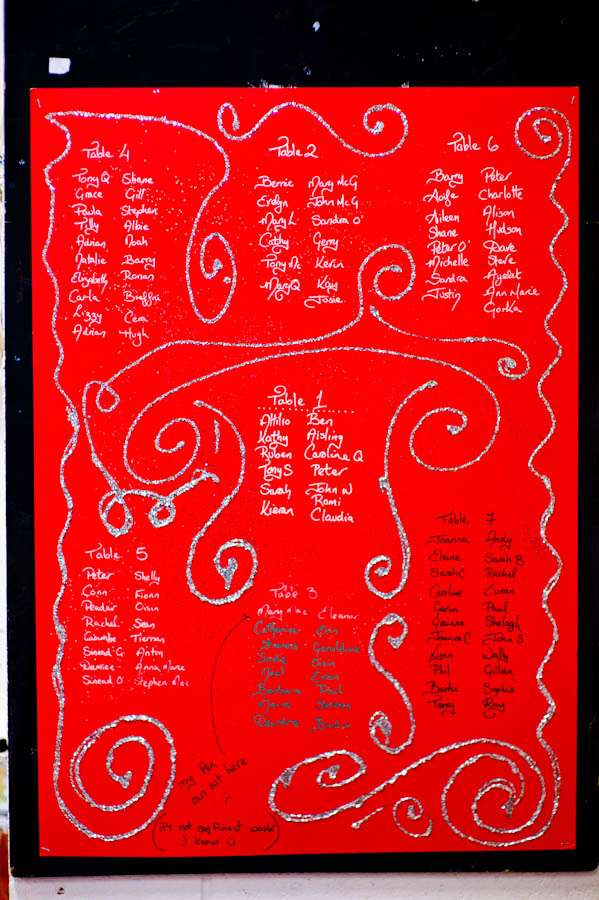 Table 4
Tony Q Shane
Grace Gill
Paula Stephen
Tilly Albie
Adrian Noah
Natalie Barry
Elizabeth Ronan
Carla
Lizzy Cera
Adrian Hugh
Table 2
Bernie Mary McG
Evelyn John McG
Mary L Sandra O'
Cathy Gerry
Tony Mc Kevin
Mary Q Kay
Josie
Table 6
Barry Peter
Aoife Charlotte
Aileen Alison
Shane Hudson
Peter O' Dave
Michelle Steve
Sandra Ayelet
Justin Ann Marie
Gorka
Table 1
Attilio Ben
Kathy Aisling
Ruben Caroline Q
Tony S Peter
Sarah John W
Kieran Romi
Claudia
Table 5
Peter Shelly
Conn Fionn
Peadair Oisin
Rachel Sean
Tiernan
Sinead G Anton
Anna Marie
Sinead O' Stephen Mac
Table 3
Mary Mac Eleanor
Catherine
Frances Geraldine
Oisin
Noel Evan
Barbara Paul
Marie
Deirdre
my Pen
ran out here
(it's not my finest work
I know)
Table 7
Joanna Andy
Elaine Sarah B
Sarah C Rachel
Caroline
Gavin Paul
Grainne Shelagh
Joanne C John S
Lynn Wally
Phil Gillian
Sophie
Terry Ray